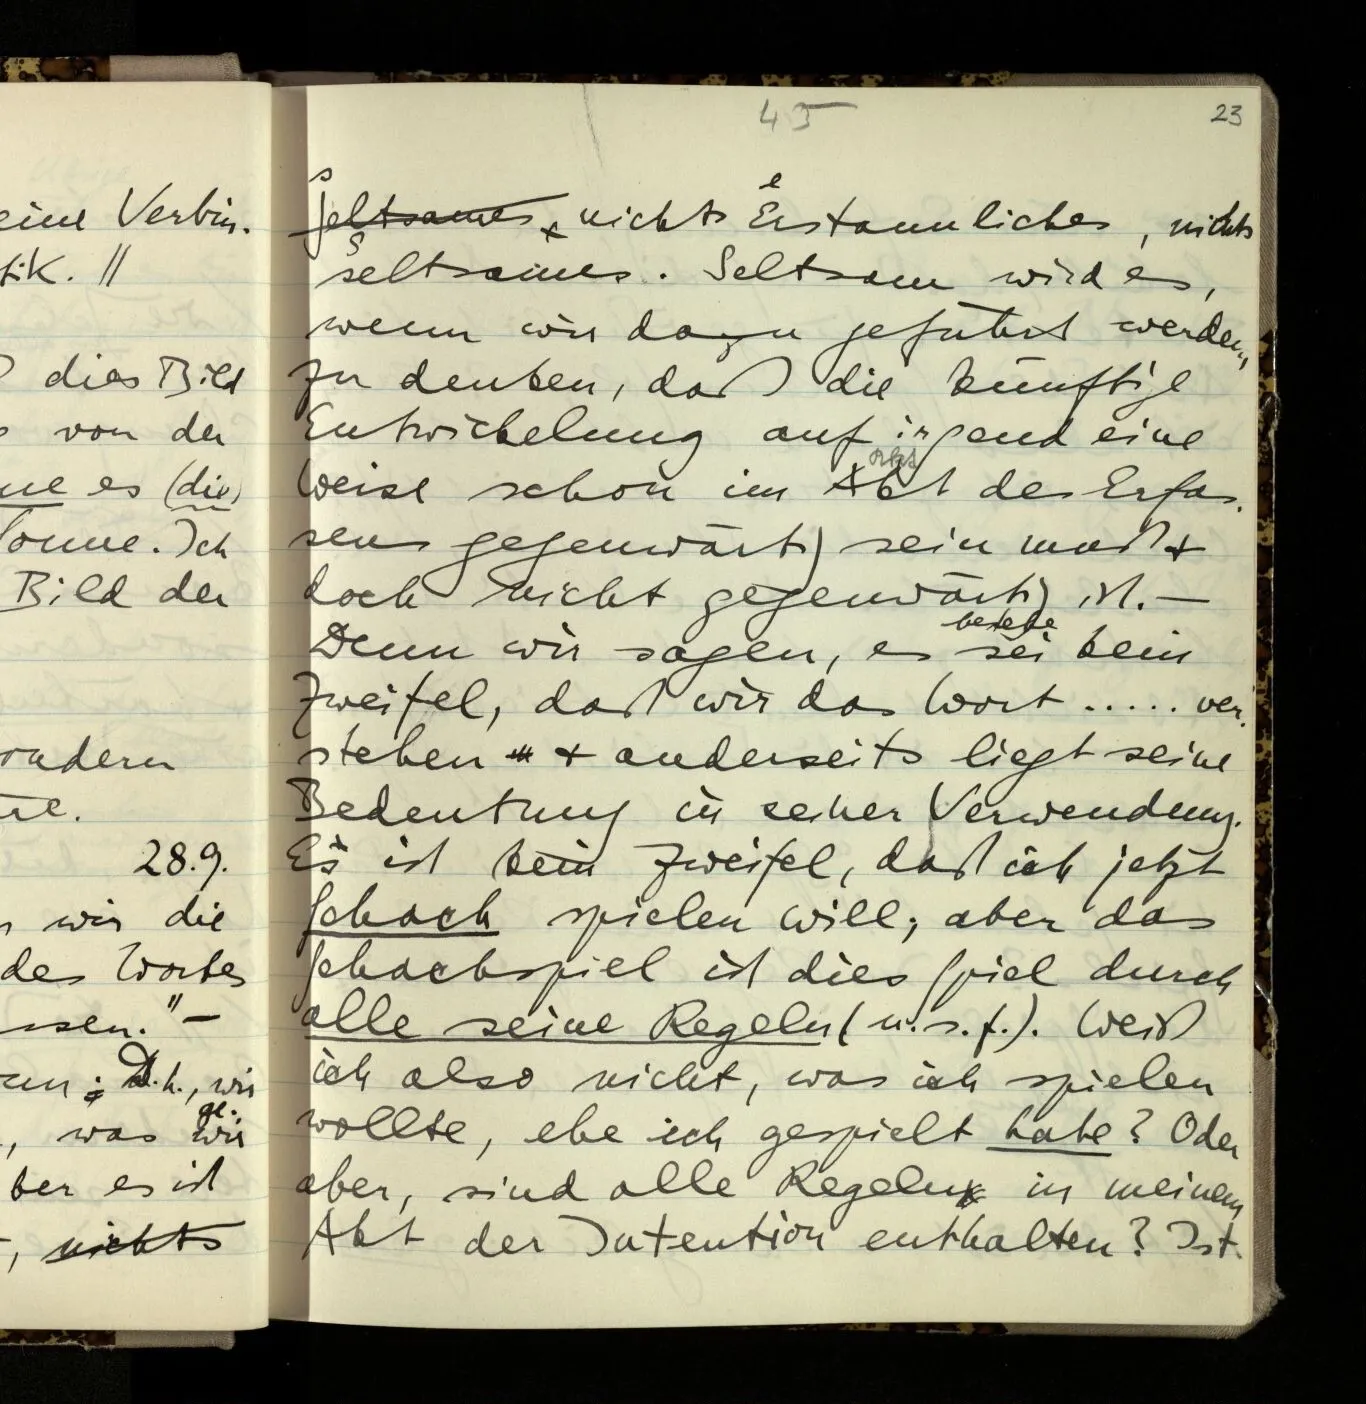 eine Verbin-
tik. ||
dies Bild
von der
es (die)
Sonne. Ich
Bild der
sondern
28.9.
wir die
des Wortes
ssen." –
D.h., wir
ge-
, was wir
ber es ist
, nichts
45
23
s
Seltsames + nichts Erstaunliches, nichts
e
S
seltsames. Seltsam wird es,
wenn wir dazu geführt werden,
zu denken, daß die künftige
Entwickelung auf irgend eine
Akt
Weise schon im Akt des Erfas-
sens gegenwärtig sein muß &
doch nicht gegenwärtig ist. –
bestehe
Denn wir sagen, es sei kein
Zweifel, daß wir das Wort ..... ver-
stehen & anderseits liegt seine
Bedeutung in seiner Verwendung.
Es ist kein Zweifel, daß ich jetzt
Schach spielen will; aber das
Schachspiel ist dies Spiel durch
alle seine Regeln (u.s.f.). Weiß
ich also nicht, was ich spielen
wollte, ehe ich gespielt habe? Oder
aber, sind alle Regeln in meinem
Akt der Intention enthalten? Ist